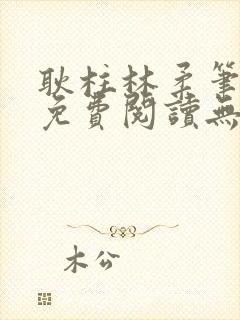 耿柱林柔筆
免費閱讀無
木公